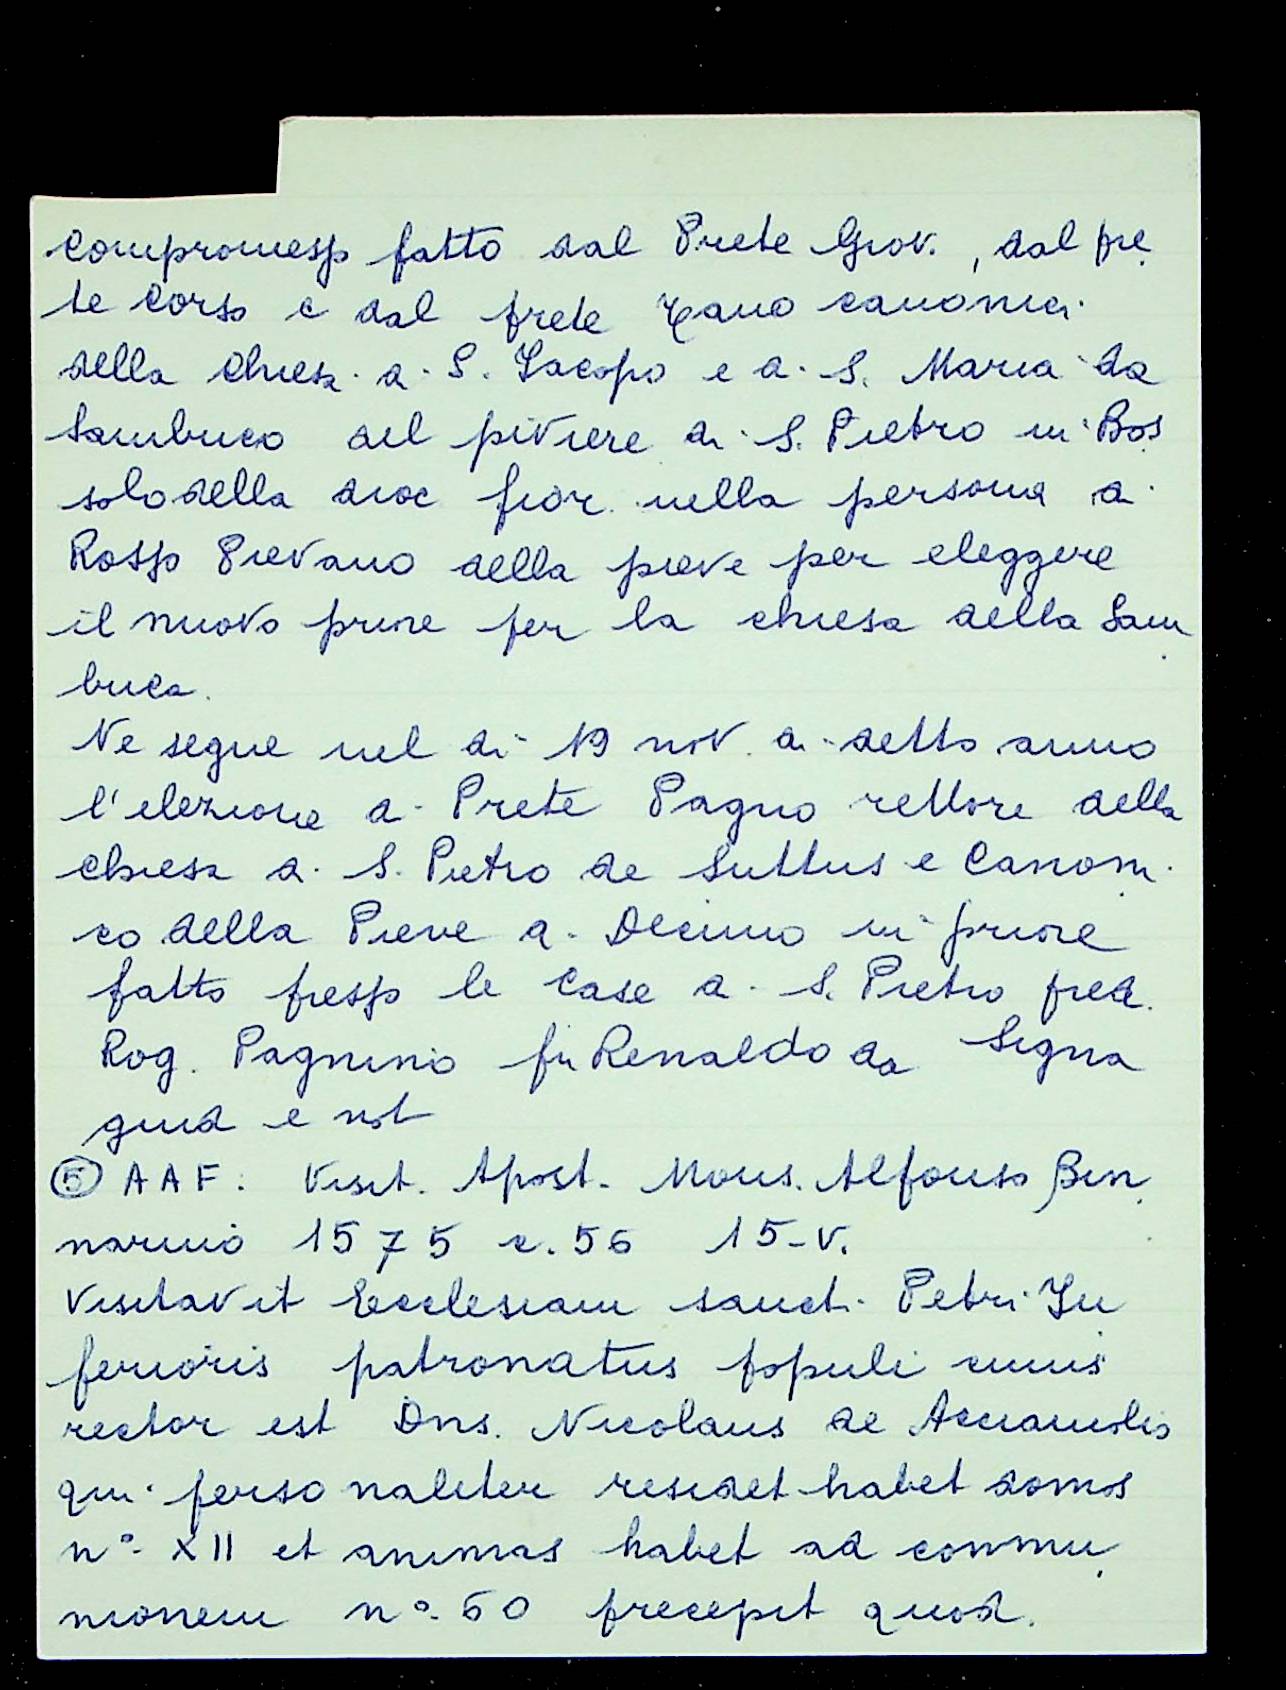 compromesso fatto dal Prete Giov., dal pre
te Corso e dal prete Tano canonici
della chiesa di S. Jacopo e di S. Maria da
Sambuco del piviere di S. Pietro in Bos
solo della dioc fior. nella persona di
Rosso Pievano della pieve per eleggere
il nuovo priore per la chiesa della Sam
buca.
Ne segue nel di 19 nov. di detto anno
l'elezione di Prete Pagno rettore della
chiesa di S. Pietro de Suttus e Canoni
co della Pieve a Decimo in priore
fatto presso le case di S. Pietro pred.
Rog. Pagnino fu Renaldo da Signa
giud e not
⑤ AAF. Visit. Apost. Mons. Alfonso Bin
narino 1575 c. 56 15-V.
Visitavit Ecclesiam sancti Petri In
ferioris patronatus populi cuius
rector est Dns. Nicolaus de Acciaiuolis
qui personaliter residet habet domos
n° XII et animas habet ad commu
nionem n° 60 precepit quod.